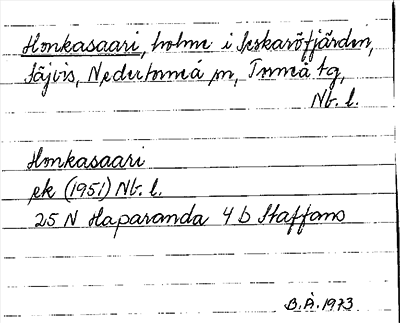 Honkasaari, holme i Seskaröfjärden,
Säjvis, Nedertorneå sn, Torneå tg,
Nb. l.
Honkasaari
ek (1951) Nb. l.
25 N Haparanda 4 b Staffans
B.Å. 1973